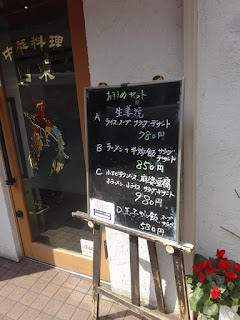 中華料理
おすすめセット
A 生姜焼
ライス スープ サラダ デザート
780円
B ラーメン + 半炒飯 サラダ デザート
850円
C 小エビチリソース 麻婆豆腐
半ラーメン 小ライス サラダ デザート
980円
D 炒飯 スープ サラダ
580円